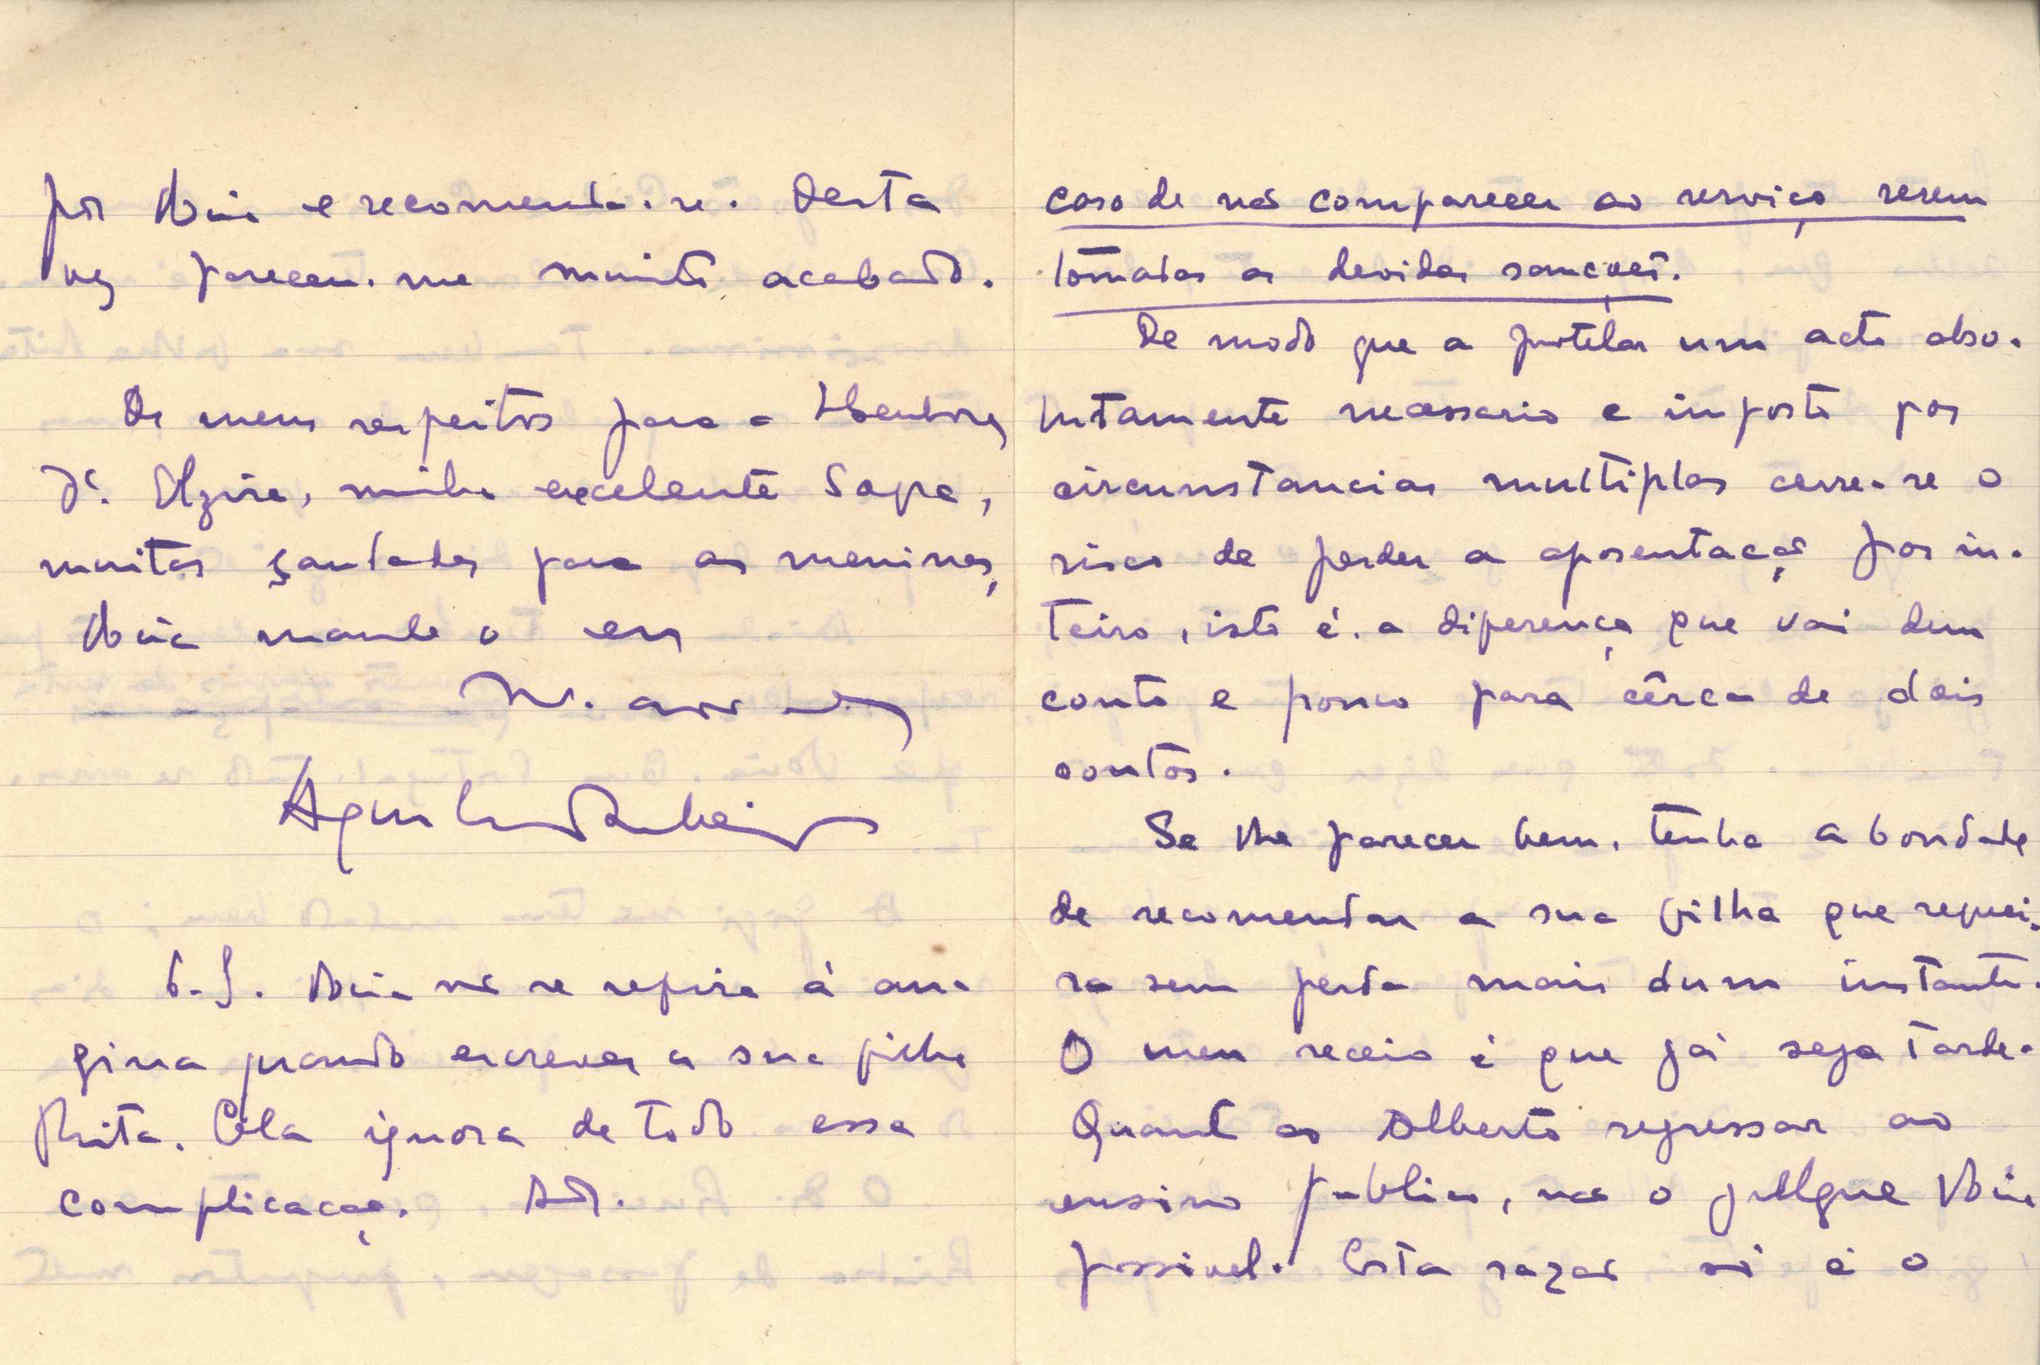 por Vocia e recomenda-se. Desta
vez pareceu-me muito acabado.
Os meus respeitos para a
Dª. Elzira, minha excelente
muitas saudades para as meninas,
Vocia mande o seu
M. am
Aquilino Ribeiro
P.S. Vocia não se refira á an-
gina quando escrever a sua filha
Rita. Ela ignora de todo essa
complicação. AR.
caso de não comparecer ao serviço serem
tomadas as devidas sanções.
De modo que a protelar um acto abso-
lutamente necessario e imposto por
circunstancias multiplas corre-se o
risco de perder a aposentação por in-
teiro, isto é, a diferença que vai dum
conto e pouco para cêrca de dois
contos.
Se lhe parecer bem, tenha a bondade
de recomendar a sua filha que requei-
ra sem perda mais dum instante.
O meu receio é que já seja tarde.
Quanto ao Alberto regressar ao
ensino publico, não o julgue Vocia
possivel. Esta razão só é o